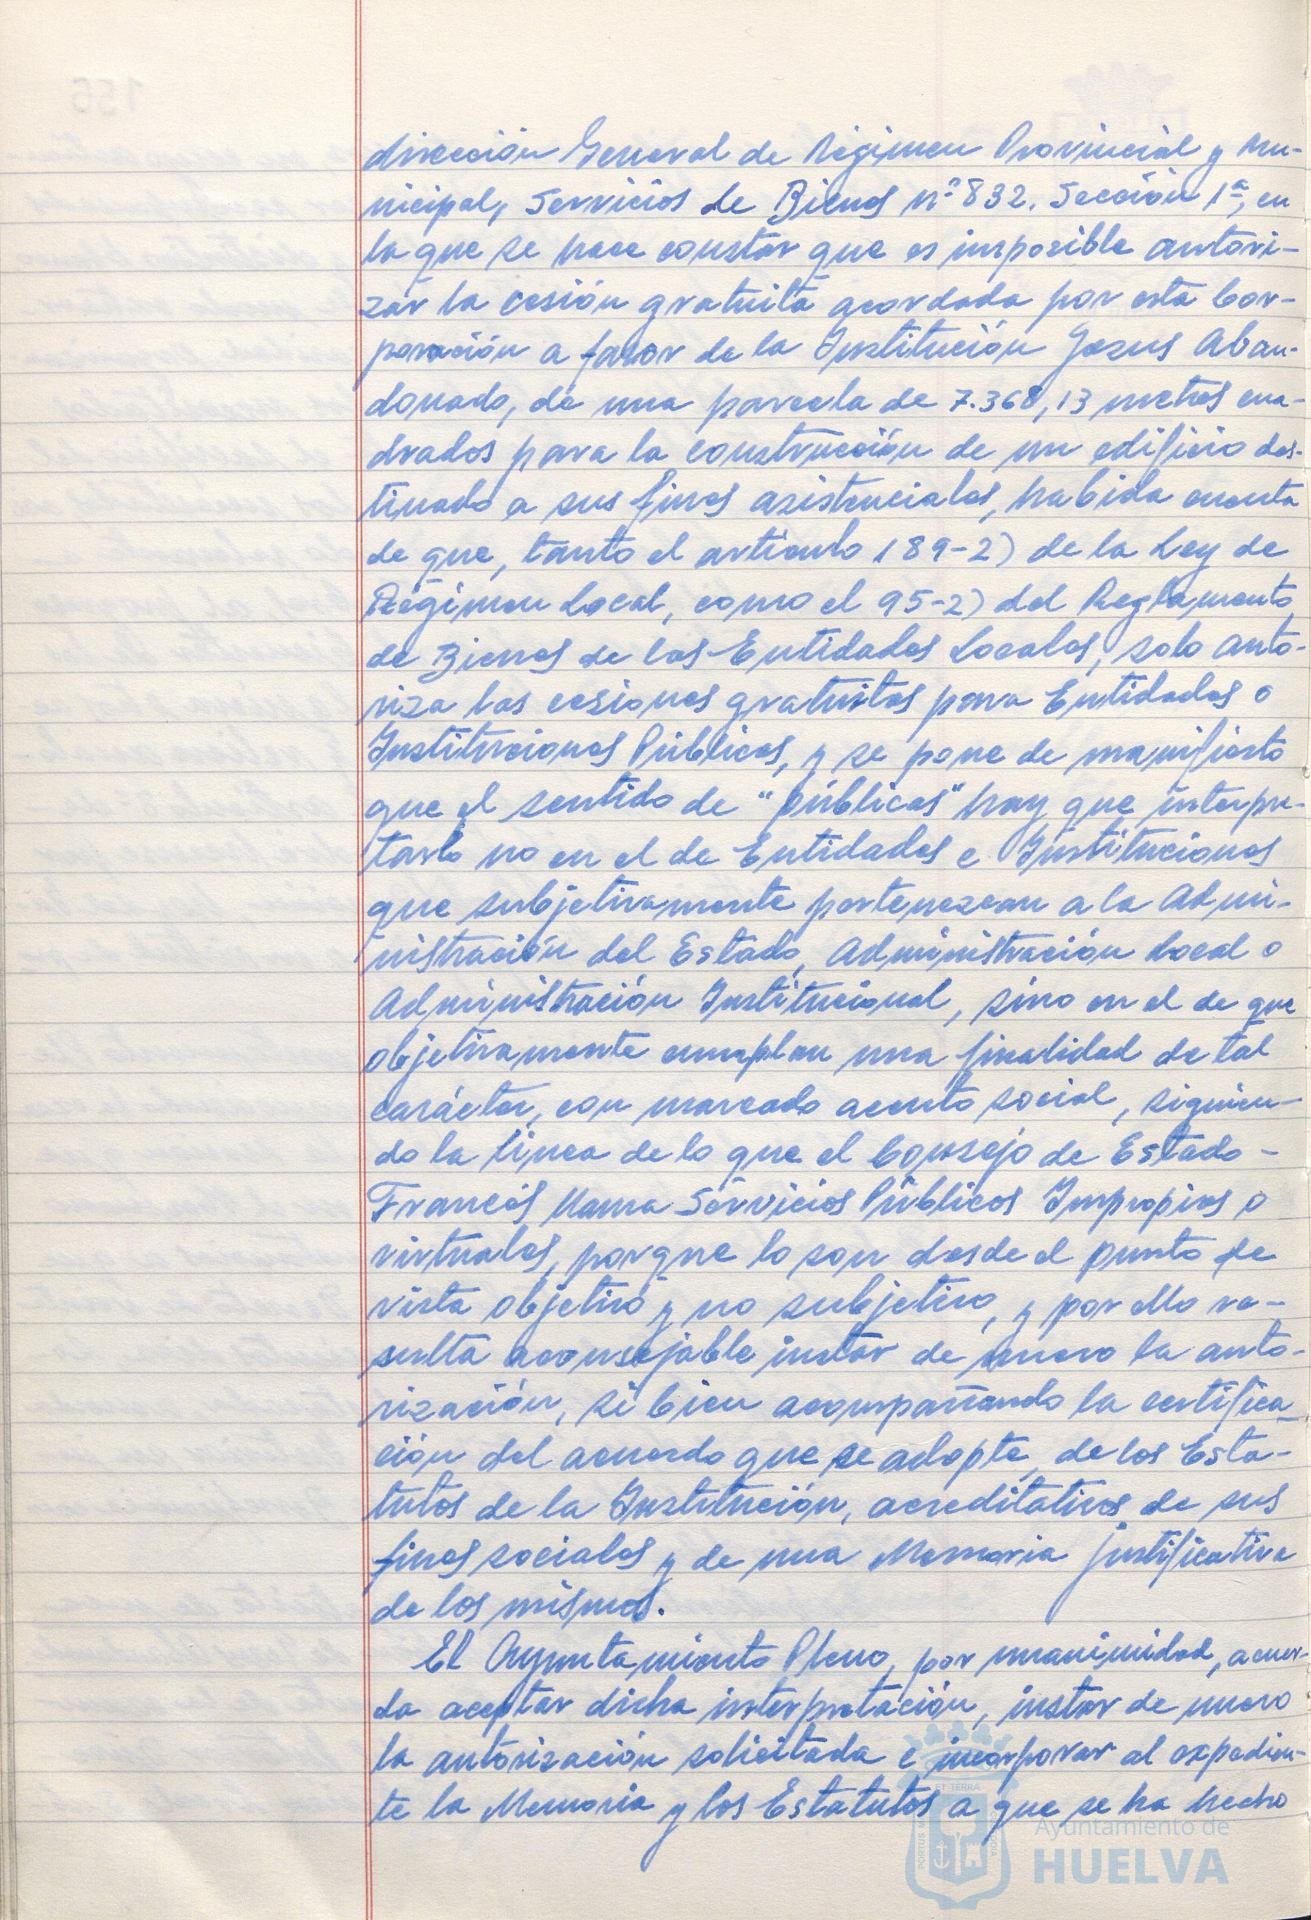 dirección General de Régimen Provincial y Mu-
nicipal, Servicios de Bienes nº 832. Sección 1ª, en
la que se hace constar que es imposible autori-
zar la cesión gratuita acordada por esta Cor-
poración a favor de la Institución Jesus Aban-
donado, de una parcela de 7.368,13 metros cua-
drados para la construcción de un edificio des-
tinado a sus fines asistenciales, habida cuenta
de que, tanto el artículo 189-2) de la Ley de
Régimen Local, como el 95-2) del Reglamento
de Bienes de las Entidades Locales, solo auto-
riza las cesiones gratuitas para Entidades o
Instituciones Públicas, y se pone de manifiesto
que el sentido de "públicas" hay que interpre-
tarlo no en el de Entidades e Instituciones
que subjetivamente pertenezcan a la Admi-
nistración del Estado, Administración Local o
Administración Institucional, sino en el de que
objetivamente cumplan una finalidad de tal
carácter, con marcado acento social, siguien-
do la línea de lo que el Consejo de Estado -
Francés llama Servicios Públicos Impropios o
virtuales, porque lo son desde el punto de
vista objetivo y no subjetivo, y por ello re-
sulta aconsejable instar de nuevo la auto-
rización, si bien acompañando la certifica-
ción del acuerdo que se adopte, de los Esta-
tutos de la Institución, acreditativos de sus
fines sociales y de una Memoria justificativa
de los mismos.
El Ayuntamiento Pleno, por unanimidad, acuer-
da aceptar dicha interpretación, instar de nuevo
la autorización solicitada e incorporar al expedien-
te la Memoria y los Estatutos a que se ha hecho
Ayuntamiento de
HUELVA